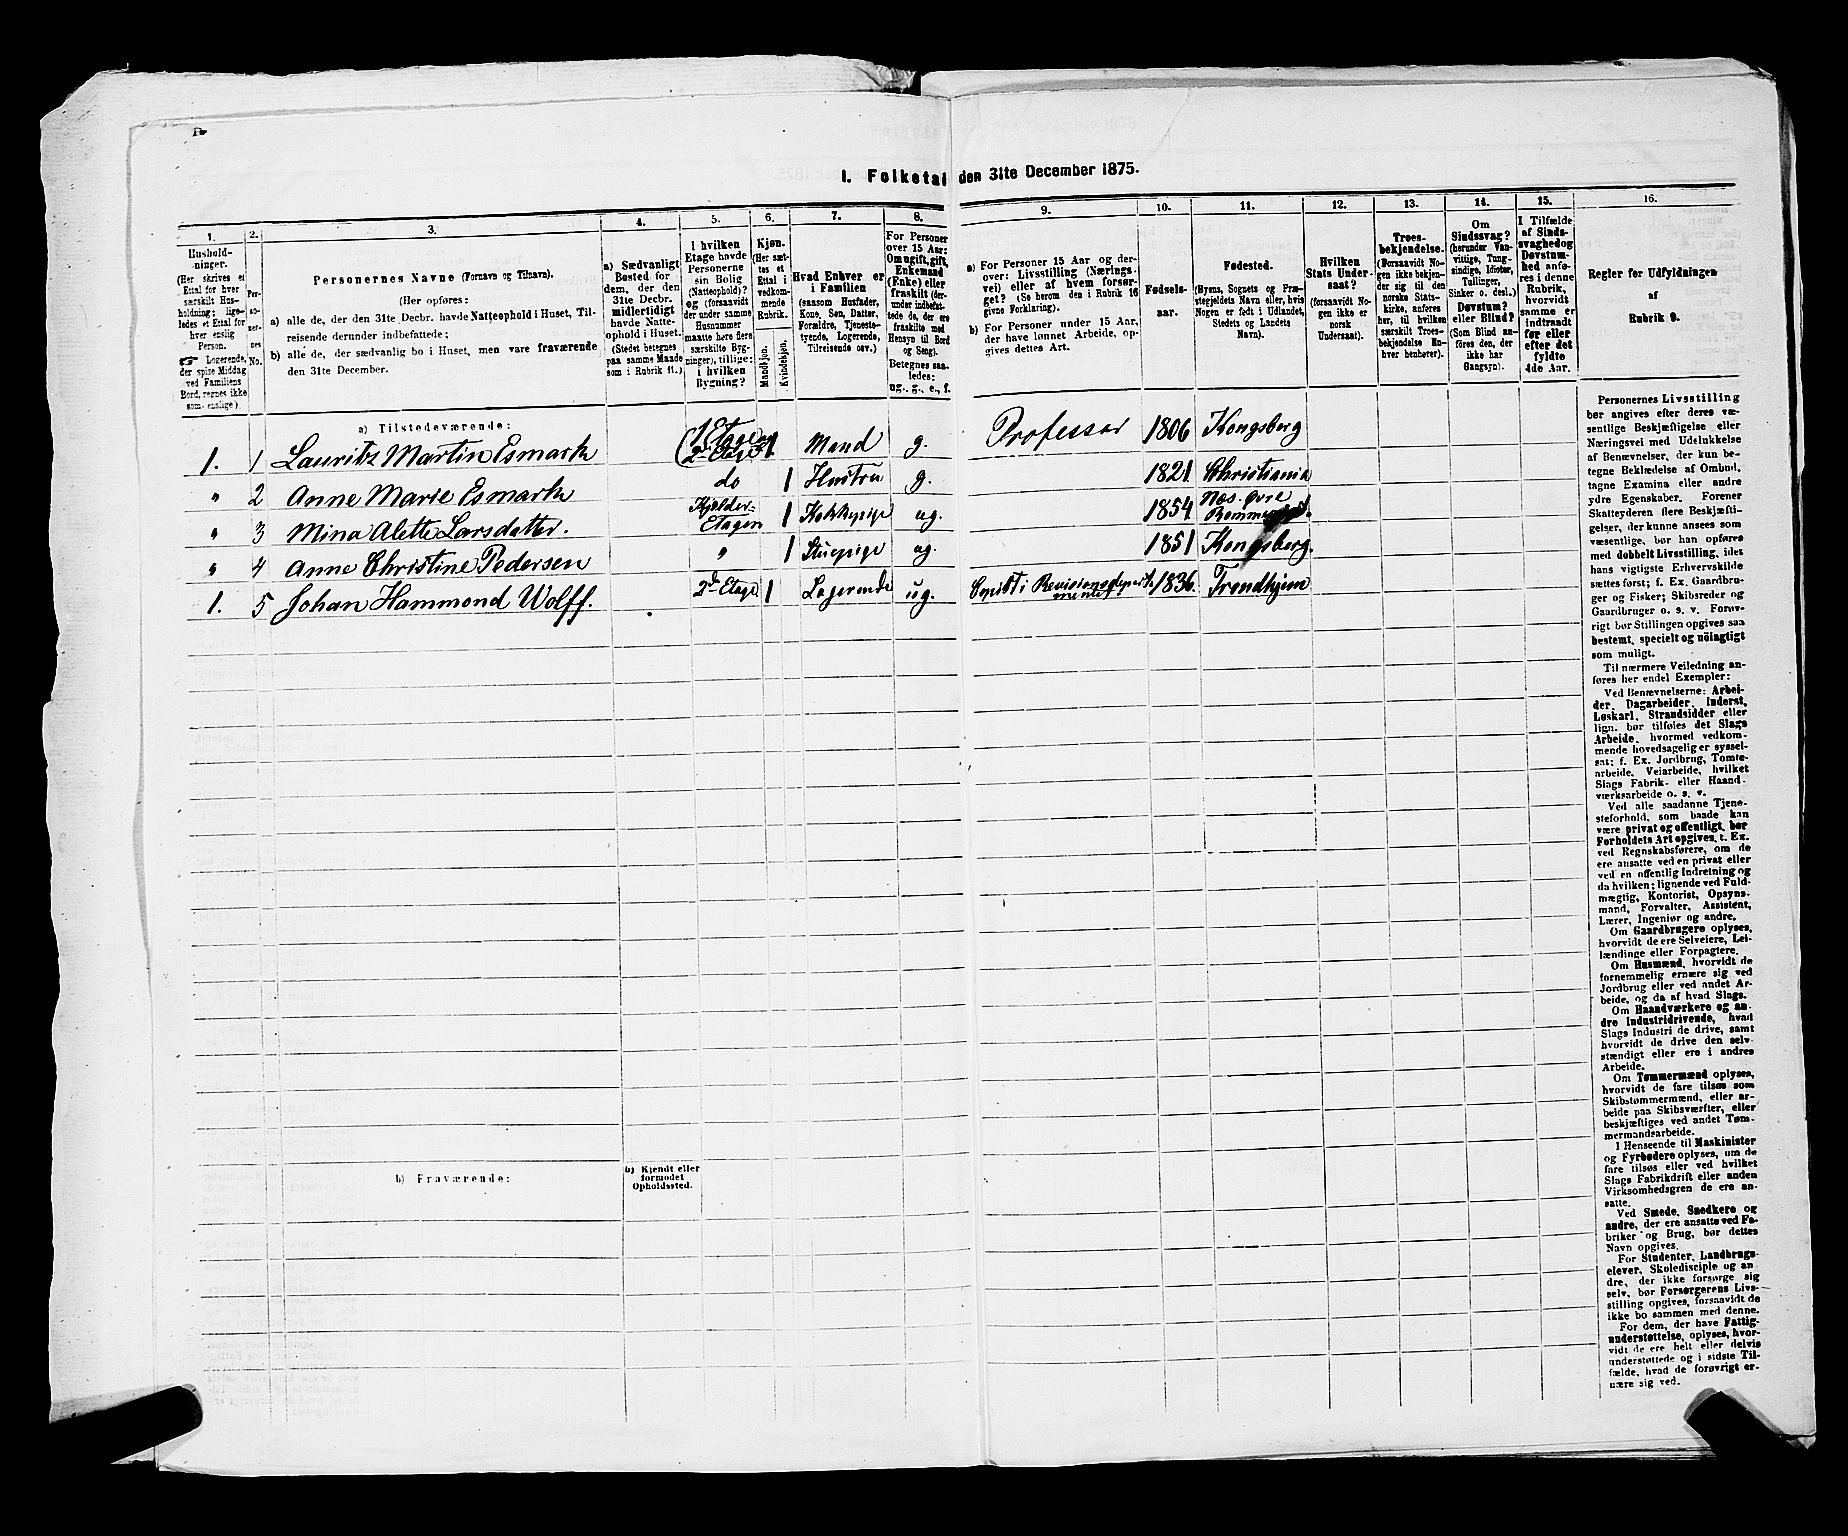 I. Folketal den 31te December 1875.
1.
Hushold-
ninger.
(Her skrives et
Ettal for hver
særskilt Hus-
holdning; lige-
ledes et Ettal for
hver enslig
Person.
☛ Logerende,
der spise Middag
ved Familiens
Bord, regnes ikke
som enslige).
2.
Per-
so-
ner-
nes
No.
3.
Personernes Navne (Fornavn og Tilnavn).
(Her opføres:
a) alle de, der den 31te Decbr. havde Natteophold i Huset, Til-
reisende derunder indbefattede;
b) alle de, der sædvanlig bo i Huset, men vare fraværende
den 31te December.
4.
a) Sædvanligt
Bosted for
dem, der den
31te Decbr.
midlertidigt
havde Natte-
ophold i Huset.
(Stedet betegnes
paa samme Maade
som i Rubrik 11.)
5.
I hvilken
Etage havde
Personerne
sin Bolig
(Natteophold)?
og (forsaavidt
der under samme
Husnummer
maatte høre flere
særskilte Byg-
ninger), tillige:
i hvilken
Bygning?
6.
Kjøn.
(Her sæt-
tes et
Ettal i
vedkom-
mende
Rubrik.
Mandkjøn.
Kvindekjøn.
7.
Hvad Enhver er
i Familien
(saasom Husfader,
Kone, Søn, Datter,
Forældre, Tjeneste-
tyende, Logerende,
Tilreisende osv.)
8.
For Personer
over 15 Aar:
Om ugift, gift,
Enkemand
(Enke) eller
fraskilt (der-
under indbefat-
tede de, der ere
fraskilte med
Hensyn til Bord
og Seng).
Betegnes saa-
ledes:
ug., g., e., f.
9.
a) For Personer 15 Aar og der-
over: Livsstilling (Nærings-
vei) eller af hvem forsør-
get? (Se herom den i Rubrik 16
givne Forklaring).
b) For Personer under 15 Aar,
der have lønnet Arbeide, op-
gives dettes Art.
10.
Fødsels-
aar.
11.
Fødested.
(Byens, Sognets og Præ-
stegjeldets Navn eller, hvis
Nogen er født i Udlandet,
Stedets og Landets
Navn).
12.
Hvilken
Stats Under-
saat?
(forsaavidt No-
gen ikke er
norsk
Undersaat).
13.
Troes-
bekjendelse.
(Forsaavidt No-
gen ikke bekjen-
der sig til den
norske Stats-
kirke, anføres
her, til hvilken
særskilt Troes-
bekjendelse En-
hver henhører).
14.
Om
Sindssvag?
(herunder Van-
vittige, Tung-
sindige, Idioter,
Tullinger,
Sinker o. desl.)
Døvstum?
eller Blind?
(Som Blind an-
føres den, der
ikke har
Gangsyn).
15.
I Tilfælde
af Sinds-
svaghed og
Døvstum-
hed anfø-
res i denne
Rubrik,
hvorvidt
samme er
indtraadt
før eller
efter det
fyldte
4de Aar.
16.
Regler for Udfyldningen
af
Rubrik 9.
a) Tilstedeværende:
1. 1 Lauritz Martin Esmark (1 Etage og 2den Etage) 1 Mand g. Professor 1806 Kongsberg
" 2 Anne Marie Esmark do 1 Hustru g. 1821 Christiania
" 3 Mina Alette Larsdatter. Kjelder-Etagen 1 Kokkepige ug. 1854 Næs. Øvre
" 4 Anne Christine Pedersen " 1 Stuepige ug. 1851 Kongsberg.
1. 5 Johan Hammond Wolff. 2den Etage 1 Logerende ug. Copist i Revisionsdepartementet 1836. Trondhjem
b) Fraværende:
b) Kjendt eller
formodet
Opholdssted.
Personernes Livsstilling
bør angives efter deres væ-
sentlige Beskjæftigelse eller
Næringsvei med Udelukkelse
af Benævnelser, der kun be-
tegne Beklædelse af Ombud,
tagne Examina eller andre
ydre Egenskaber. Forener
Skatteyderen flere Beskjæfti-
gelser, der kunne ansees som
væsentlige, bør han opføres
med dobbelt Livsstilling, idet
hans vigtigste Erhvervskilde
sættes først; f. Ex. Gaardbru-
ger og Fisker; Skibsreder og
Gaardbruger o. s. v. Forøv-
rigt bør Stillingen opgives saa
bestemt, specielt og nøiagtigt
som muligt.
Til nærmere Veiledning an-
føres her endel Exempler:
Ved Benævnelserne: Arbei-
der, Dagarbeider, Inderst,
Løskarl, Strandsidder eller
lign. bør tilføies det Slags
Arbeide, hvormed vedkom-
mende hovedsagelig er syssel-
sat; f. Ex. Jordbrug, Tomte-
arbeide, Veiarbeide, hvilket
Slags Fabrik- eller Haand-
værksarbeide o. s. v.
Ved alle saadanne Tjene-
steforhold, som baade kan
være privat og offentligt, bør
Forholdets Art opgives, t. Ex.
ved Regnskabsførere, om de
ere ansatte ved en privat eller
ved en offentlig Indretning og
da hvilken; lignende ved Fuld-
mægtig, Kontorist, Opsyns-
mand, Forvalter, Assistent,
Lærer, Ingeniør og andre.
Om Gaardbrugere oplyses,
hvorvidt de ere Selveiere, Lei-
lændinge eller Forpagtere.
Om Husmænd, hvorvidt de
fornemmelig ernære sig ved
Jordbrug eller ved andet Ar-
beide, og da af hvad Slags.
Om Haandværkere og an-
dre Industridrivende, hvad
Slags Industri de drive, samt
hvorvidt de drive den selv-
stændigt eller ere i andres
Arbeide.
Om Tømmermænd oplyses,
hvorvidt de fare tilsøs som
Skibstømmermænd, eller ar-
beide paa Skibsværfter, eller
beskjæftiges ved andet Tøm-
mermandsarbeide.
I Henseende til Maskinister
og Fyrbødere oplyses, om de
fare tilsøs eller ved hvilket
Slags Fabrikdrift eller anden
Virksomhedsgren de ere an-
satte.
Ved Smede, Snedkere og
andre, der ere ansatte ved Fa-
briker og Brug, bør dettes
Navn opgives.
For Studenter, Landbrugs-
elever, Skoledisciple og an-
dre, der ikke forsørge sig
selv, bør Forsørgerens Livs-
stilling opgives, forsaavidt de
ikke bo sammen med denne.
For dem, der have Fattig-
understøttelse, oplyses, hvor-
vidt de ere helt eller delvis
understøttede og i sidste Til-
fælde, hvad de forøvrigt er-
nære sig ved.